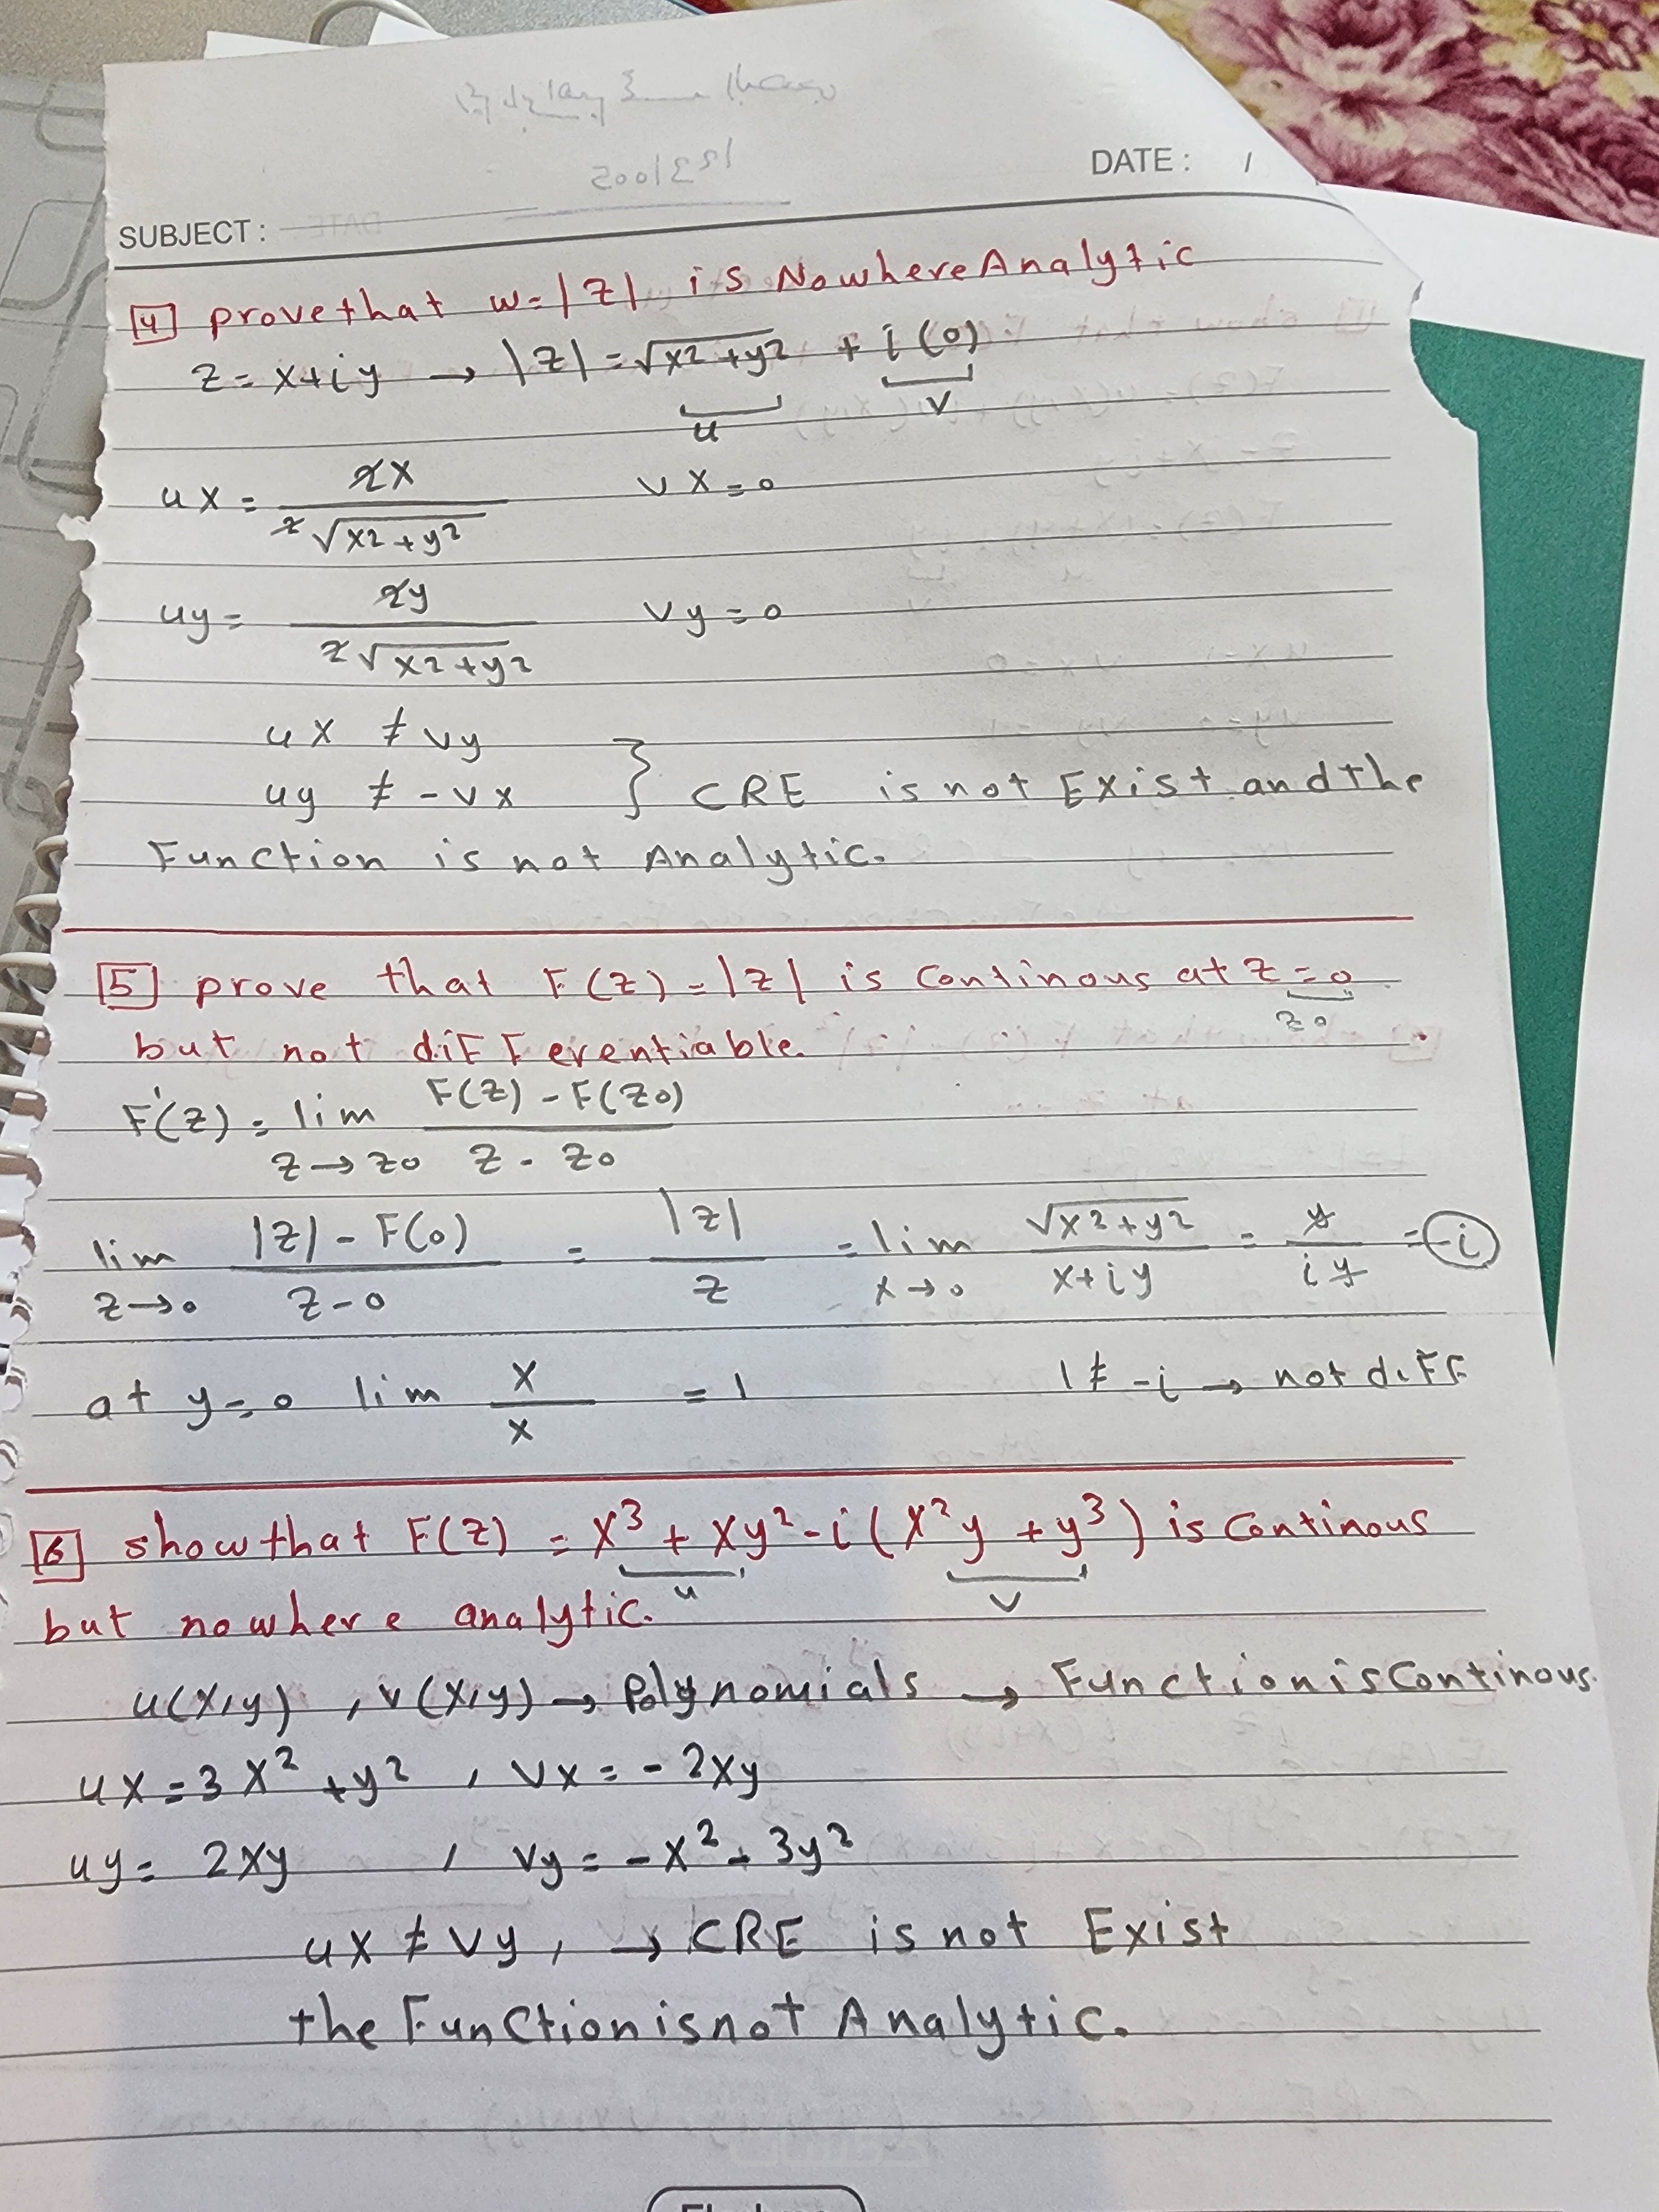 DATE : /
SUBJECT :
[4] prove that w=|z| is Nowhere Analytic
z = x+iy → |z| = √x2+y2 + i(0)
u v
ux = 2x / 2√x2+y2 vx=0
uy = 2y / 2√x2+y2 vy=0
ux ≠ vy
uy ≠ -vx } CRE is not Exist and the
Function is not Analytic.
[5] prove that F(z)=|z| is continous at z=0
z0
but not differentiable.
F'(z) = lim z→z0 F(z)-F(z0) / z-z0
lim z→0 |z|-F(0) / z-0 = |z| / z = lim x→0 √x2+y2 / x+iy = y / iy = -i
at y=0 lim x / x = 1 1≠-i → not diff
[6] show that F(z) = x³+xy²-i(x²y+y³) is continous
u v
but nowhere analytic.
u(x,y), v(x,y) → Polynomials → Function is Continous.
ux=3x²+y², vx=-2xy
uy=2xy , vy=-x²-3y²
ux≠vy, → CRE is not Exist
the Function is not Analytic.